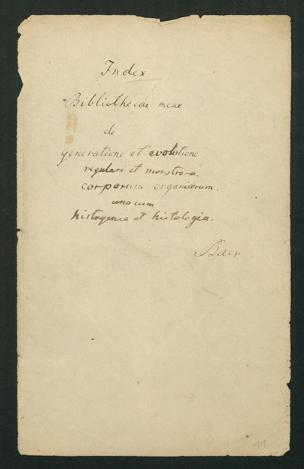 Index
Bibliothecae meae
de
generatione et evolutione
regulari et monstrosa
corporum organicorum
una cum
histogenia et histologia.
Baer